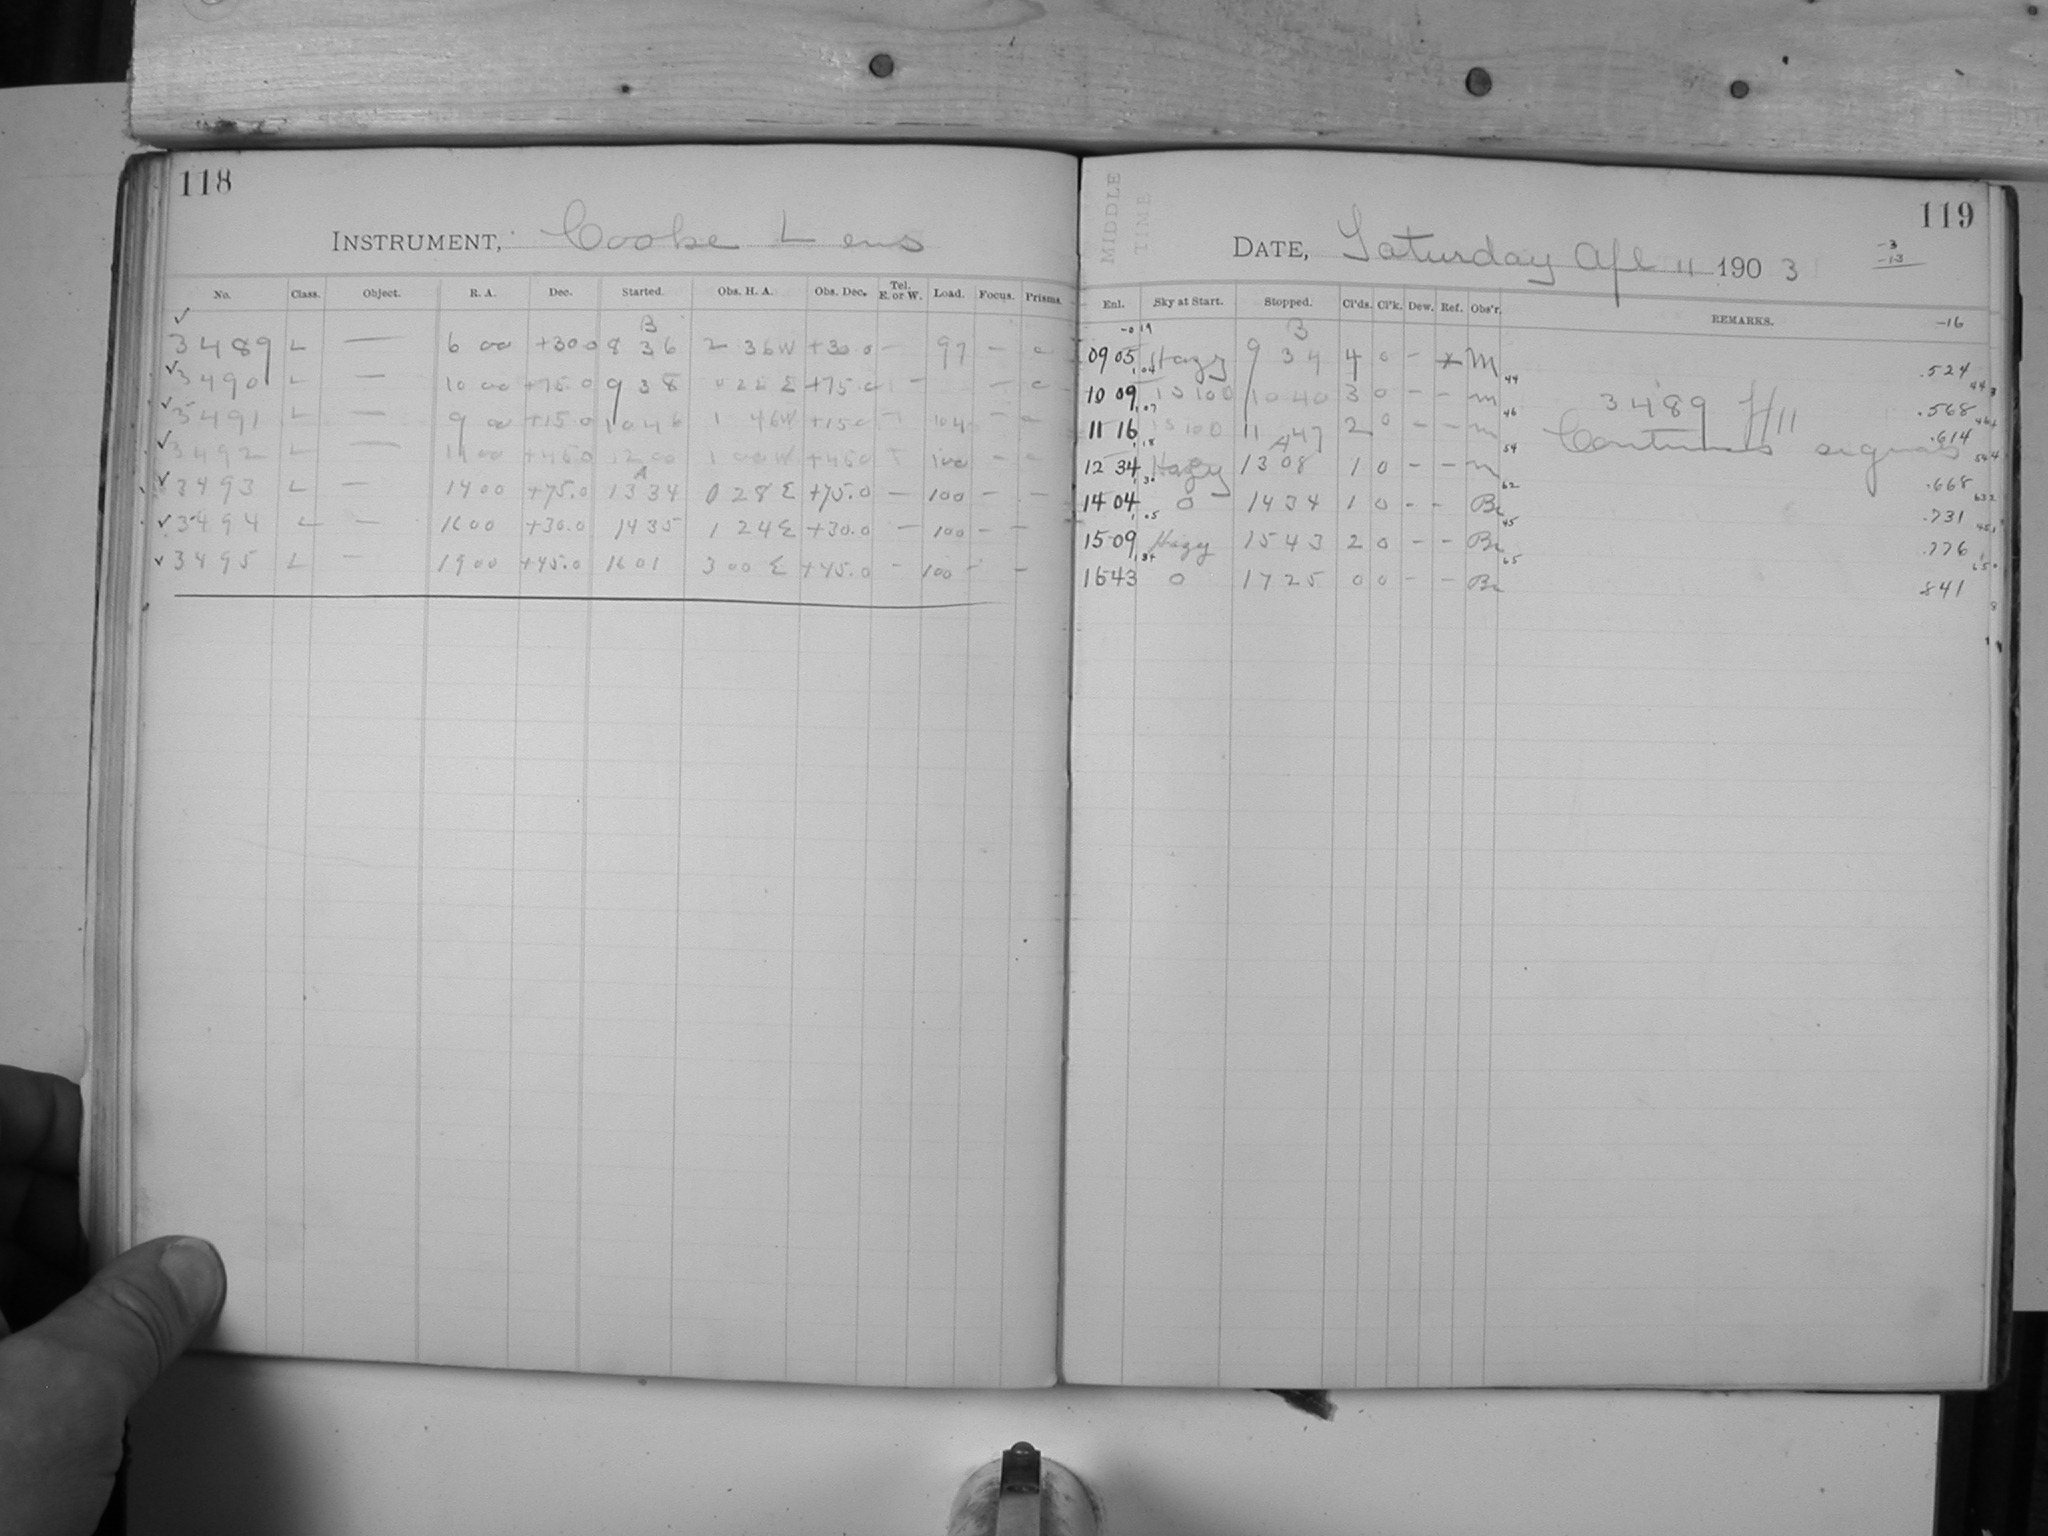 118
INSTRUMENT, Cooke Lens
No. Class. Object. R. A. Dec. Started. Obs. H. A. Obs. Dec. Tel. E. or W. Load. Focus. Prisms.
B
✓ 3489 L — 6 00 +30.0 8 36 2 36W +30.0 — 97 —
✓ 3490 L — 10 00 +75.0 9 38 0 22 E +75.0 — —
✓ 3491 L — 9 00 +15.0 10 46 1 46W +15.0 — 104 —
✓ 3492 L — 11 00 +45.0 12 00 1 00W +45.0 100 —
A
✓ 3493 L — 14 00 +75.0 13 34 0 28 E +75.0 — 100 — —
✓ 3494 L — 16 00 +30.0 14 35 1 24 E +30.0 — 100 — —
✓ 3495 L — 19 00 +45.0 16 01 3 00 E +45.0 — 100 — —
MIDDLE
TIME
119
DATE, Saturday Apl 11 1903
-3
-13
Enl. Sky at Start. Stopped. Cl'ds. Cl'k. Dew. Ref. Obs'r. REMARKS.
-16
-0 19
B
09 05 Hazy 9 34 4 0 — M .524
1 04 44
10 09 10 40 3 0 — — M 3489 H11 .568
1 07 46
11 16 11 47 2 0 — — M Continuous signals .614
1 18 54
A
12 34 Hazy 13 08 1 0 — — M .668
1 30 62
14 04 0 14 34 1 0 — — Bc .731
1 05 45
15 09 Hazy 15 43 2 0 — — Bc .776
1 34 65
16 43 0 17 25 0 0 — — Bc 841